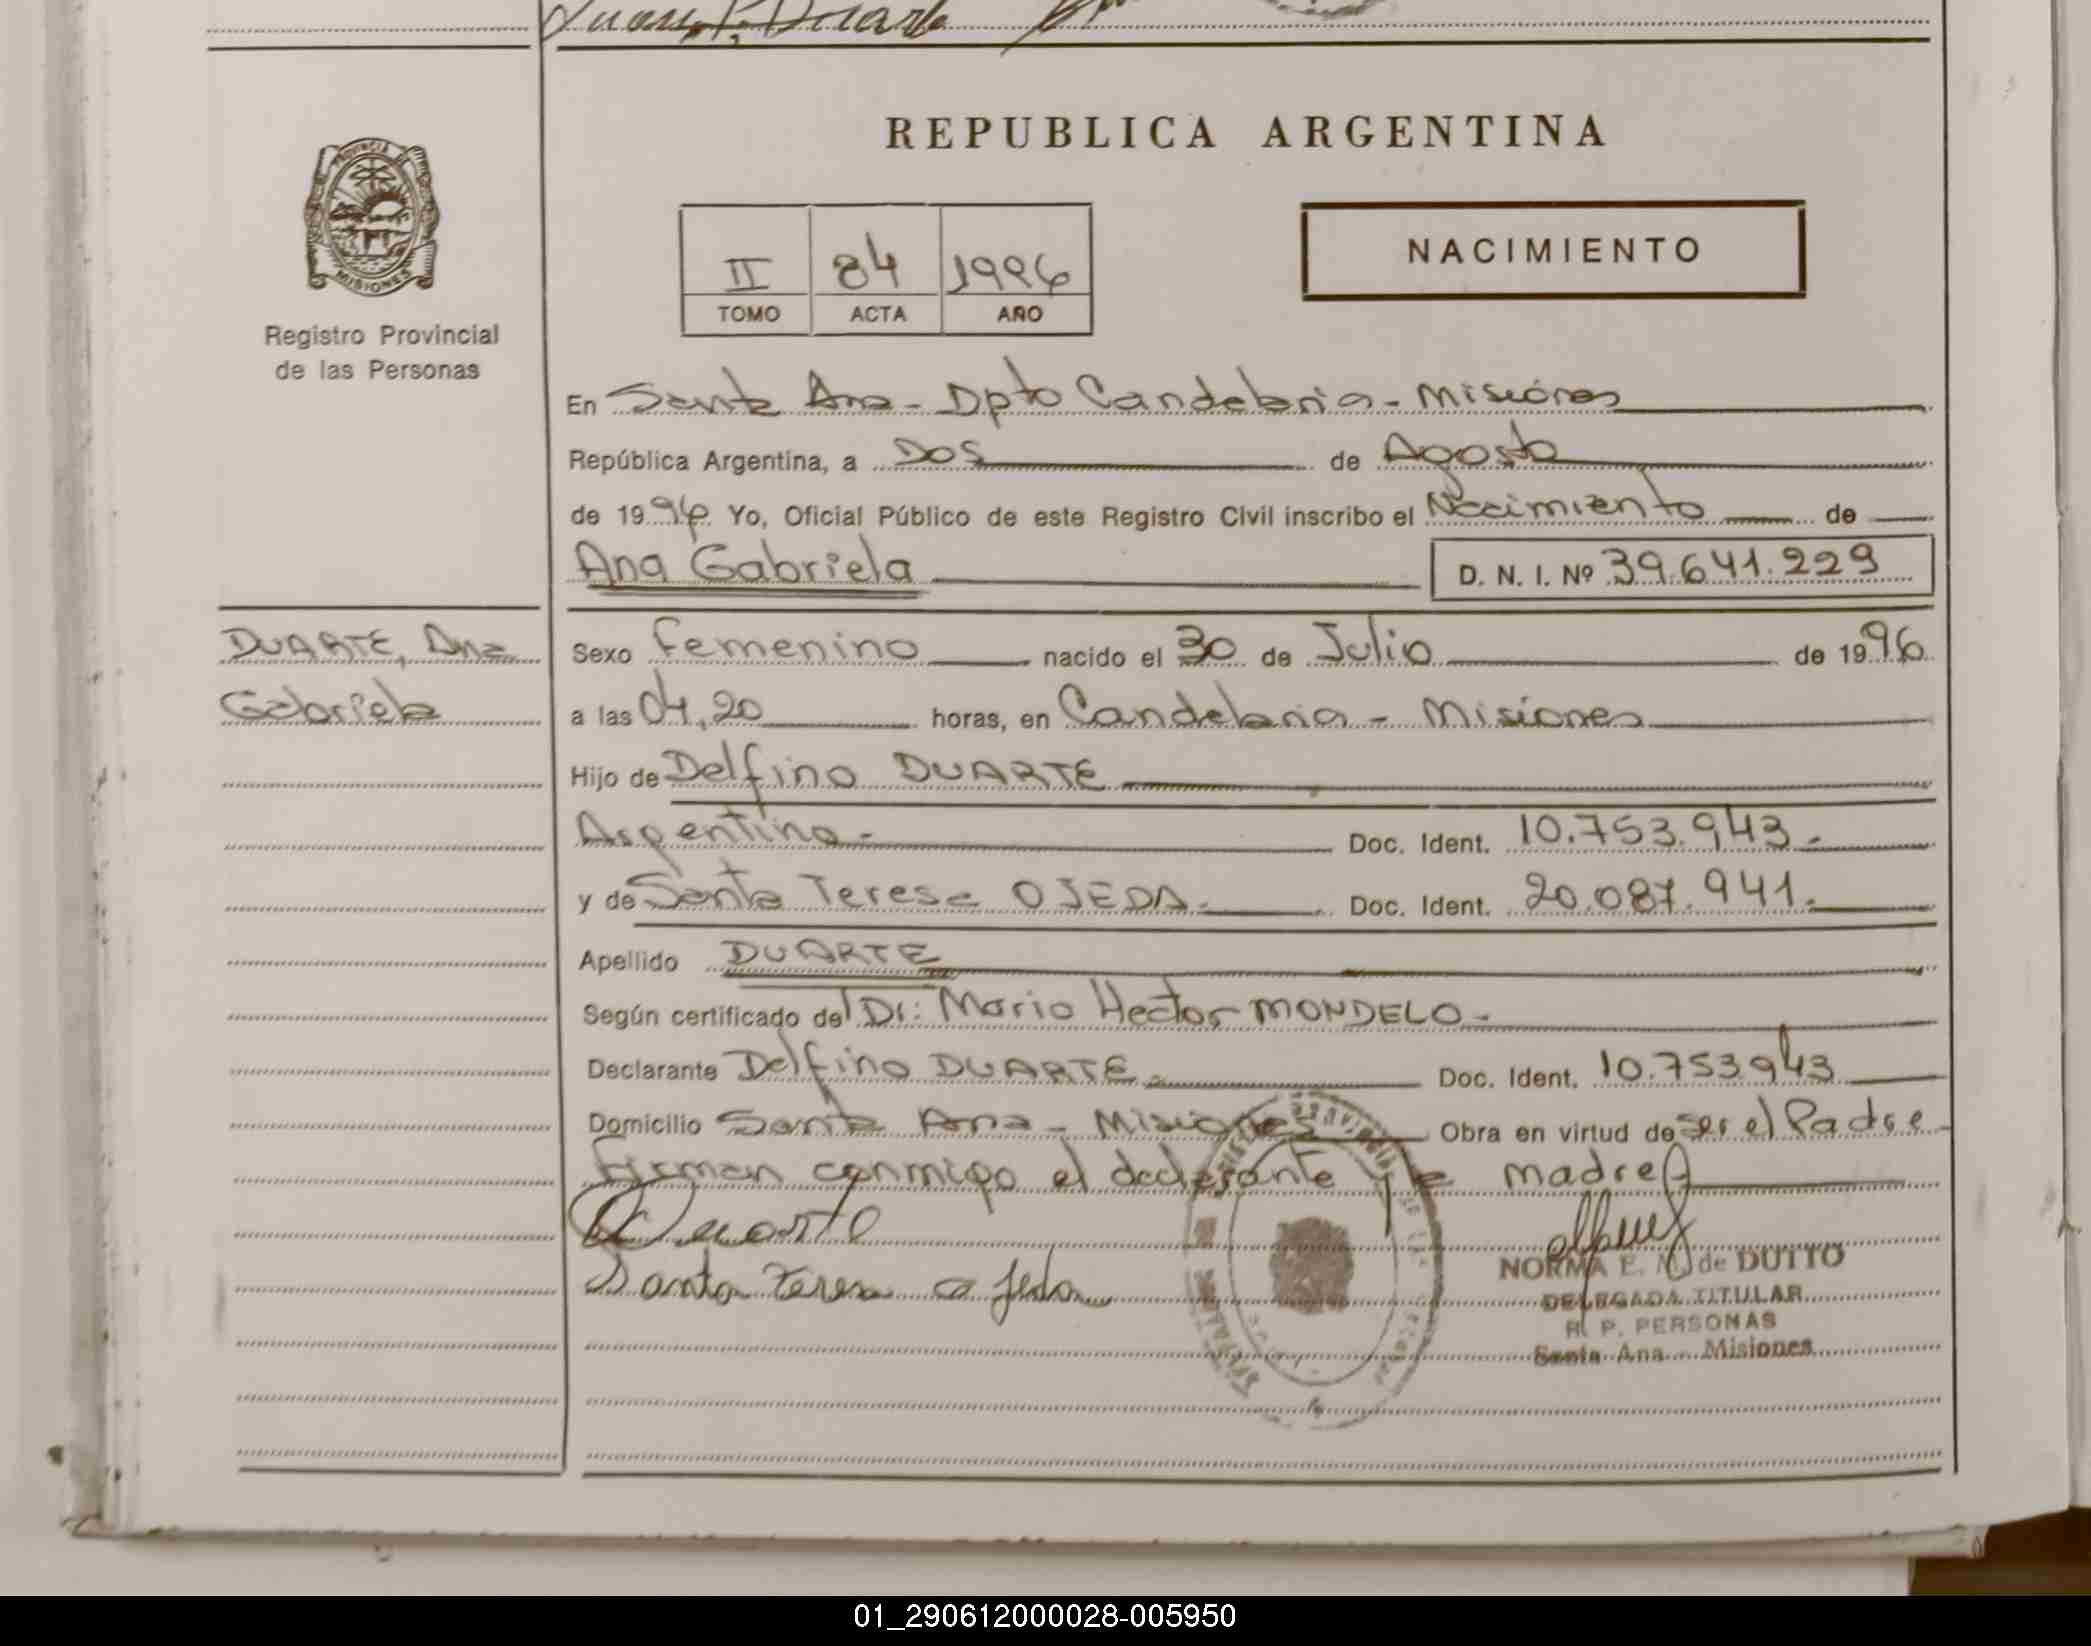 Juan P. Duarte
REPUBLICA ARGENTINA
PROVINCIA DE
MISIONES
Registro Provincial
de las Personas
NACIMIENTO
II 84 1996
TOMO ACTA AÑO
En Santa Ana - Dpto Candelaria - Misiones
República Argentina, a Dos de Agosto
de 1996 Yo, Oficial Público de este Registro Civil inscribo el Nacimiento de
Ana Gabriela D. N. I. Nº 39.641.229
DUARTE, Ana
Gabriela
Sexo Femenino nacido el 30 de Julio de 1996
a las 04,20 horas, en Candelaria - Misiones
Hijo de Delfino DUARTE
Argentino.- Doc. Ident. 10.753.943.-
y de Santa Teresa OJEDA.- Doc. Ident. 20.087.941.-
Apellido DUARTE
Según certificado del Dr: Mario Hector MONDELO.-
Declarante Delfino DUARTE.- Doc. Ident. 10.753943
Domicilio Santa Ana - Misiones Obra en virtud de ser el Padre
Firman conmigo el declarante y la madre
Duarte
Santa Teresa Ojeda
NORMA E. M. de DUTTO
DELEGADA TITULAR
R. P. PERSONAS
Santa Ana - Misiones
01_290612000028-005950